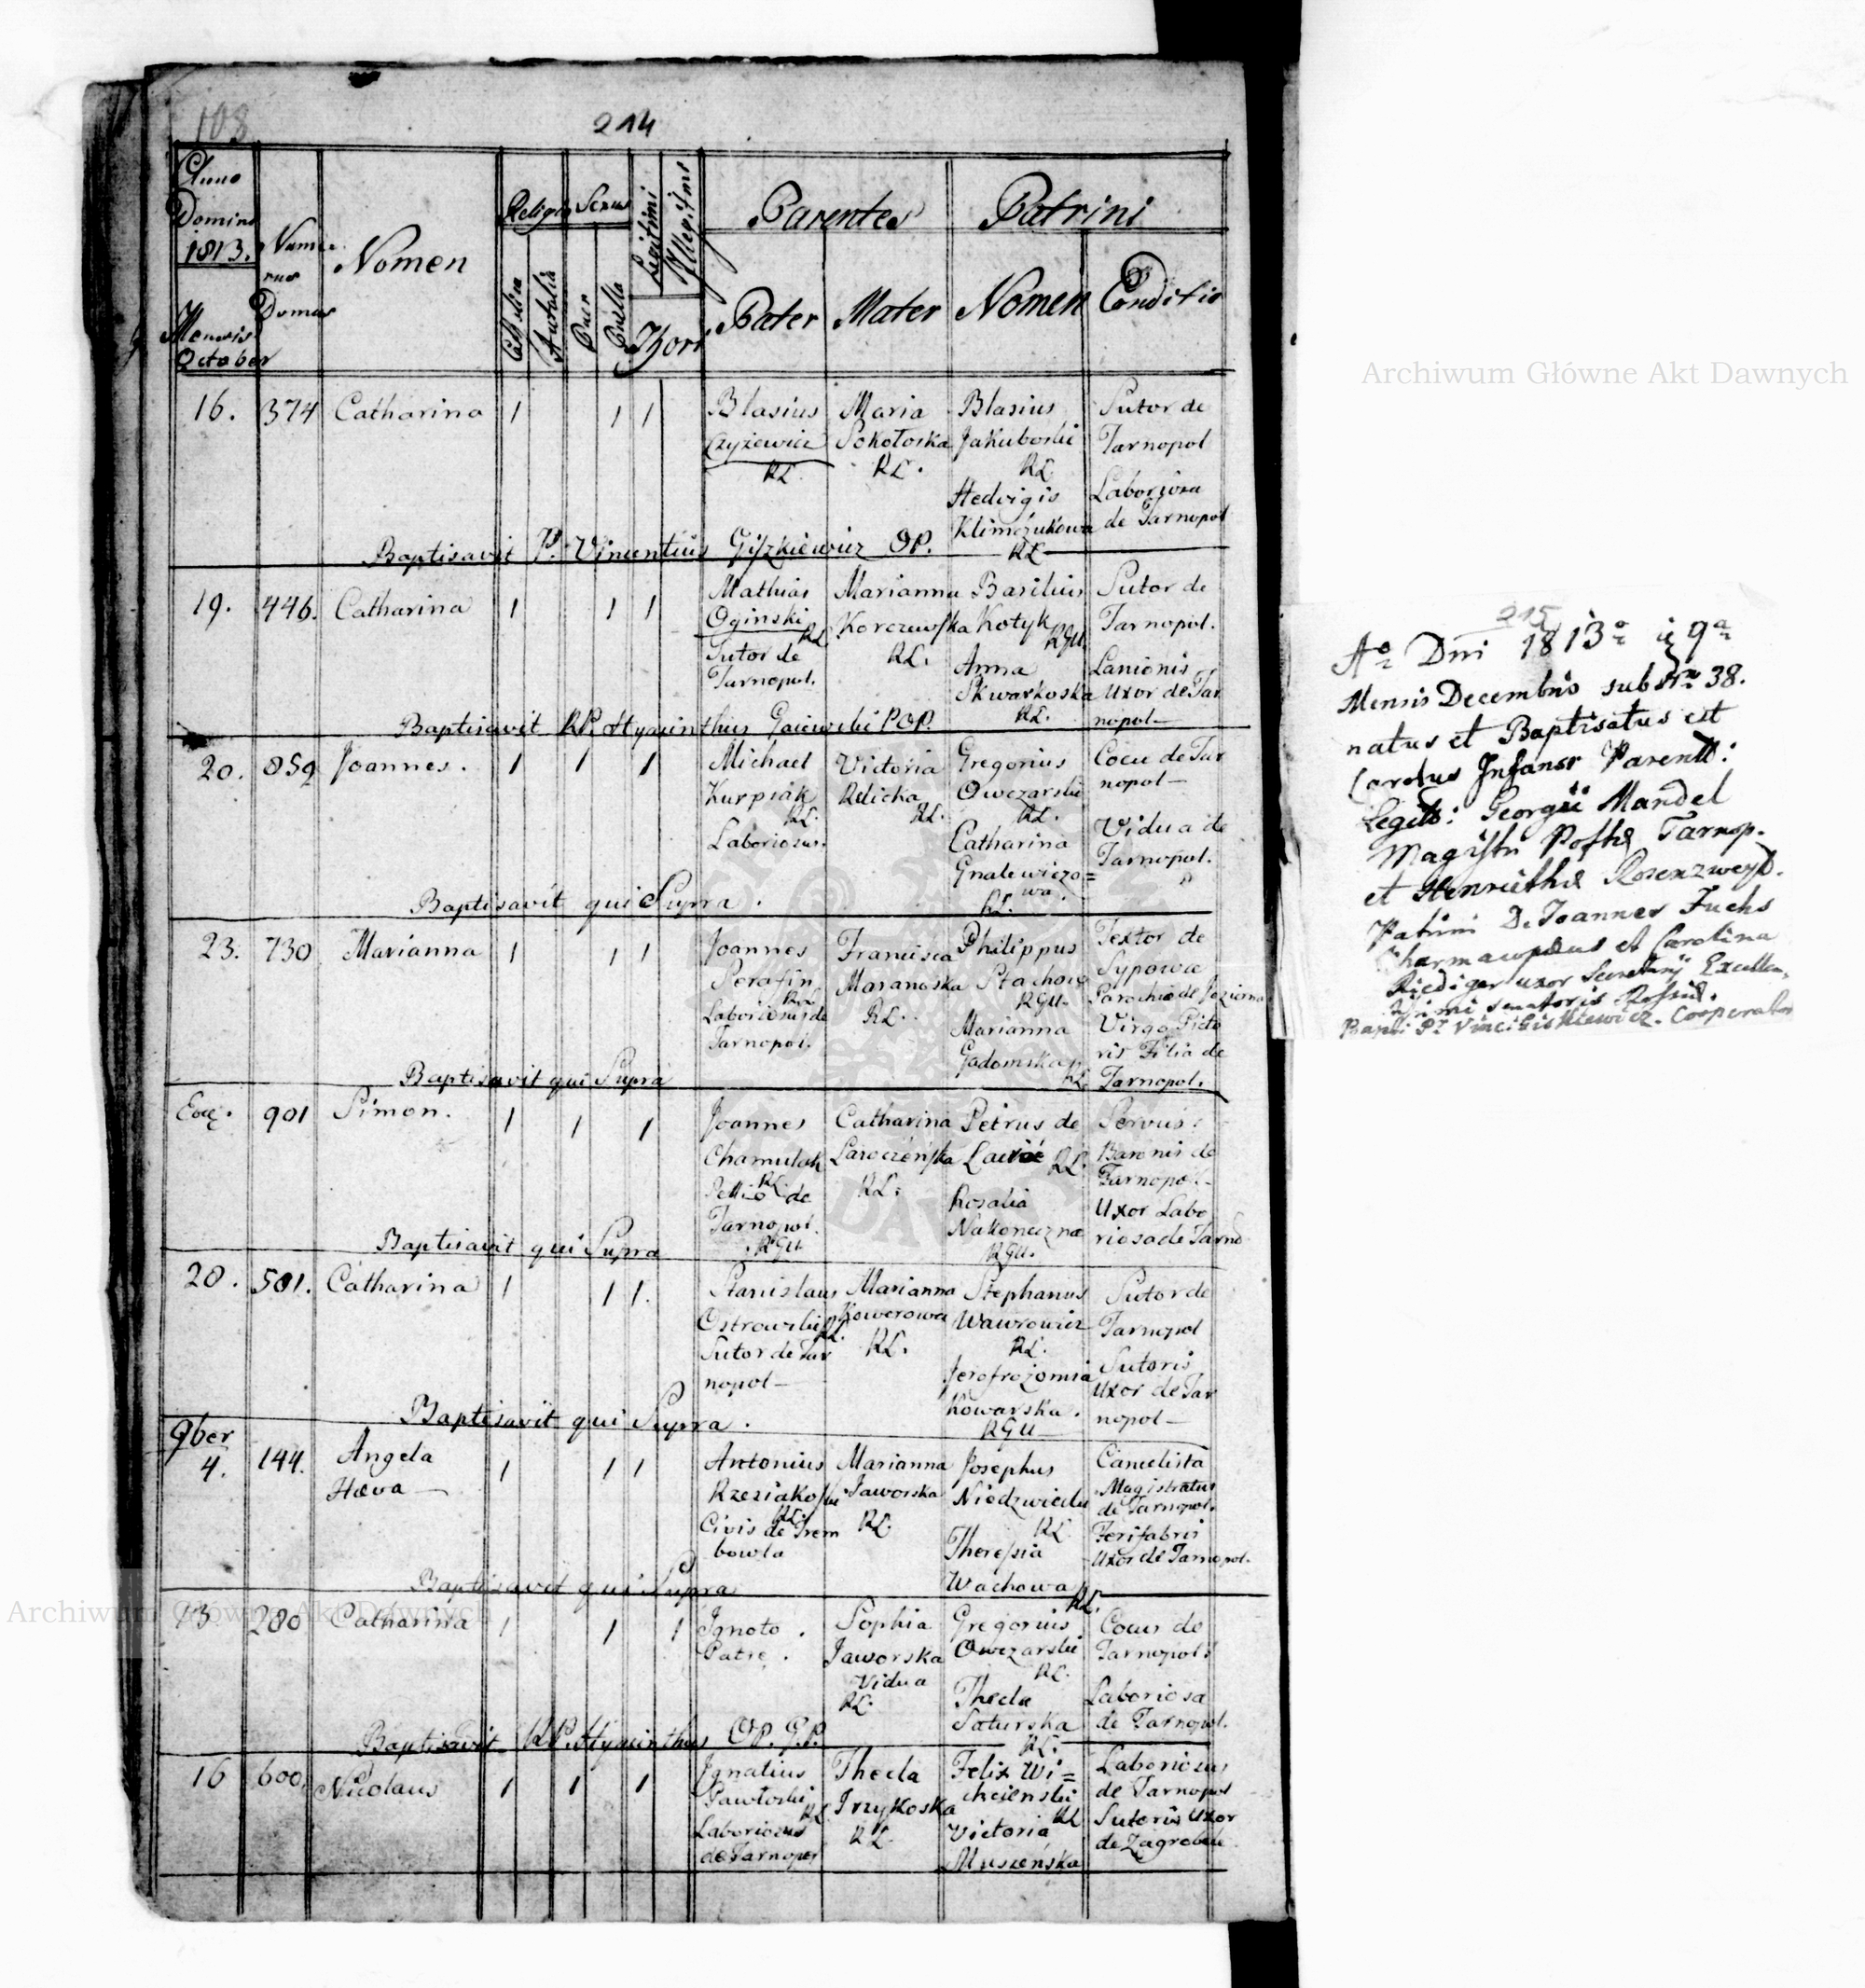 108
214
Anno Domini 1813. Mensis October
Numerus Domus
Nomen
Religio
Sexus
Catholica
Puer
Puella
Legitimi
Illegitimi
Thori
Parentes
Patrini
Pater
Mater
Nomen
Conditio
16. 374 Catharina 1 1 1 Blasius Maria Blasius Sutor de
Czyżewicz Sokołoska Jakuboski Tarnopol
RL RL. RL
Hedvigis Laboriosa
Klimczukowa de Tarnopol
Baptisavit P. Vincentius Giszkiewicz OP. RL
19. 446. Catharina 1 1 1 Mathias Marianna Basilius Sutor de
Oginski RL Korczewska Kotyk RGU Tarnopol.
Sutor de RL. Anna Lanionis
Tarnopol. Skwarkoska Uxor de Tar
RL. nopol
Baptisavit RP. Hyacinthus Gaiewski POP.
20. 859 Joannes. 1 1 1 Michael Victoria Gregorius Cocus de Tar
Kurpiak Relicka Owczarski nopol
RL. RL. RL.
Laboriosus. Catharina Vidua de
Gnalewiczo= Tarnopol.
wa.
RL.
Baptisavit qui Supra.
23. 730 Marianna 1 1 1 Joannes Francisca Philippus Textor de
Serafin Maranoska Stachow
RL RGU Parochia de Jeziorna
Laboriosus de RL. Marianna Virgo Picto
Tarnopol. Gadomska RL. ris Filia de
Tarnopol.
Baptisavit qui Supra
901 Simon. 1 1 1 Joannes Catharina Petrus de Servus
Chamulak RL. Baronis de
RL RL. Tarnopol
Pellio de Rosalia Uxor Labo
Tarnopol. Nakoneczna riosa de Tarno
RGU RGU.
Baptisavit qui Supra
28. 501. Catharina 1 1 1. Stanislaus Marianna Stephanus Sutor de
Ostrowski RL. Kowerowa Wawrowicz Tarnopol
Sutor de Tar RL. RL. Sutoris
nopol Uxor de Tar
Kowarska. nopol
RGU
Baptisavit qui Supra.
9ber
4. 144. Angela 1 1 1 Antonius Marianna Josephus Cancelista
Haeva Jaworska Magistratus
RL. RL. RL de Tarnopol.
Civis de Trem Theresia Ferifabris
bowla Wachowa RL. Uxor de Tarnopol.
Baptisavit qui Supra
13 280 Catharina 1 1 1 Ignoto Sophia Gregorius Cocus de
Patre. Jaworska Owczarski Tarnopol
Vidua RL.
RL. Thecla Laboriosa
Saturska de Tarnopol.
RL.
Baptisavit RP. Hyacinthus OP.
16 600. Nicolaus 1 1 1 Ignatius Thecla Felix Wi= Laboriosus
Pawłoski RL chcienski de Tarnopol
Laboriosus RL. Victoria RL Sutoris Uxor
de Tarnopol de Zagrobelle
215
Ao Dni 1813 9a
Mensis Decembris sub Nro 38.
natus et Baptisatus est
Carolus Infans Parent:
Legitt: Georgii Mandel
Magistri Postae Tarnop.
et Henriethae Rosenzweyd.
Patrini D. Joannes Fuchs
et Carolina
Riediger uxor Secretarij
senatoris
Cooperator
Archiwum Główne Akt Dawnych
Archiwum Główne Akt Dawnych